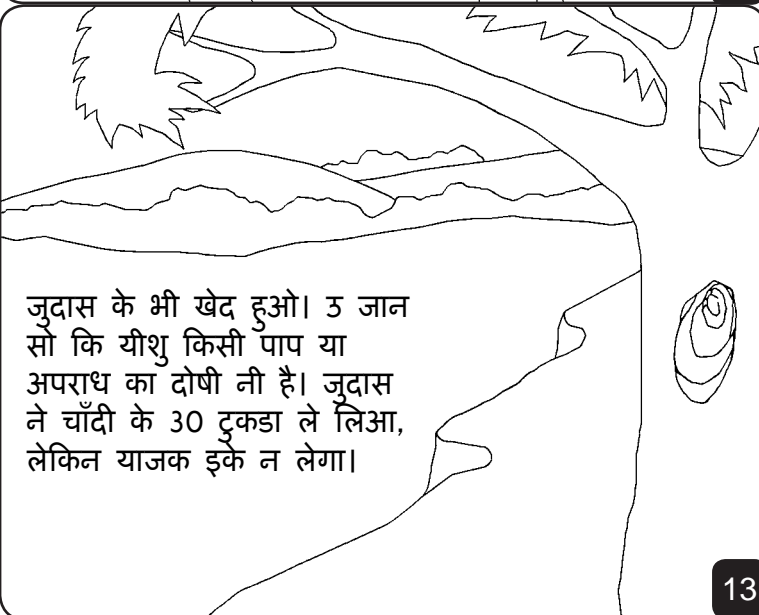 जुदास के भी खेद हुओ। उ जान
सो कि यीशु किसी पाप या
अपराध का दोषी नी है। जुदास
ने चाँदी के 30 टुकडा ले लिआ,
लेकिन याजक इके न लेगा।
13